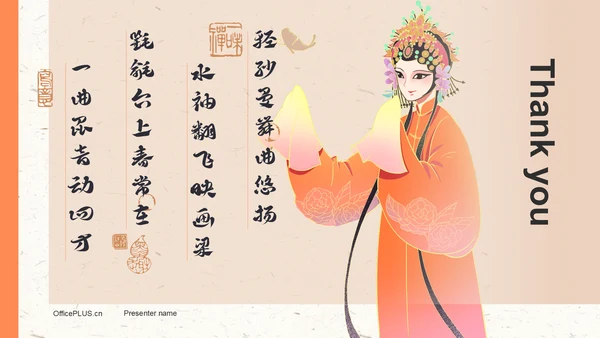 轻纱曼舞曲悠扬
水袖翻飞映画梁
氍毹台上春常在
一曲昆音动四方
Thank you
OfficePLUS.cn
Presenter name